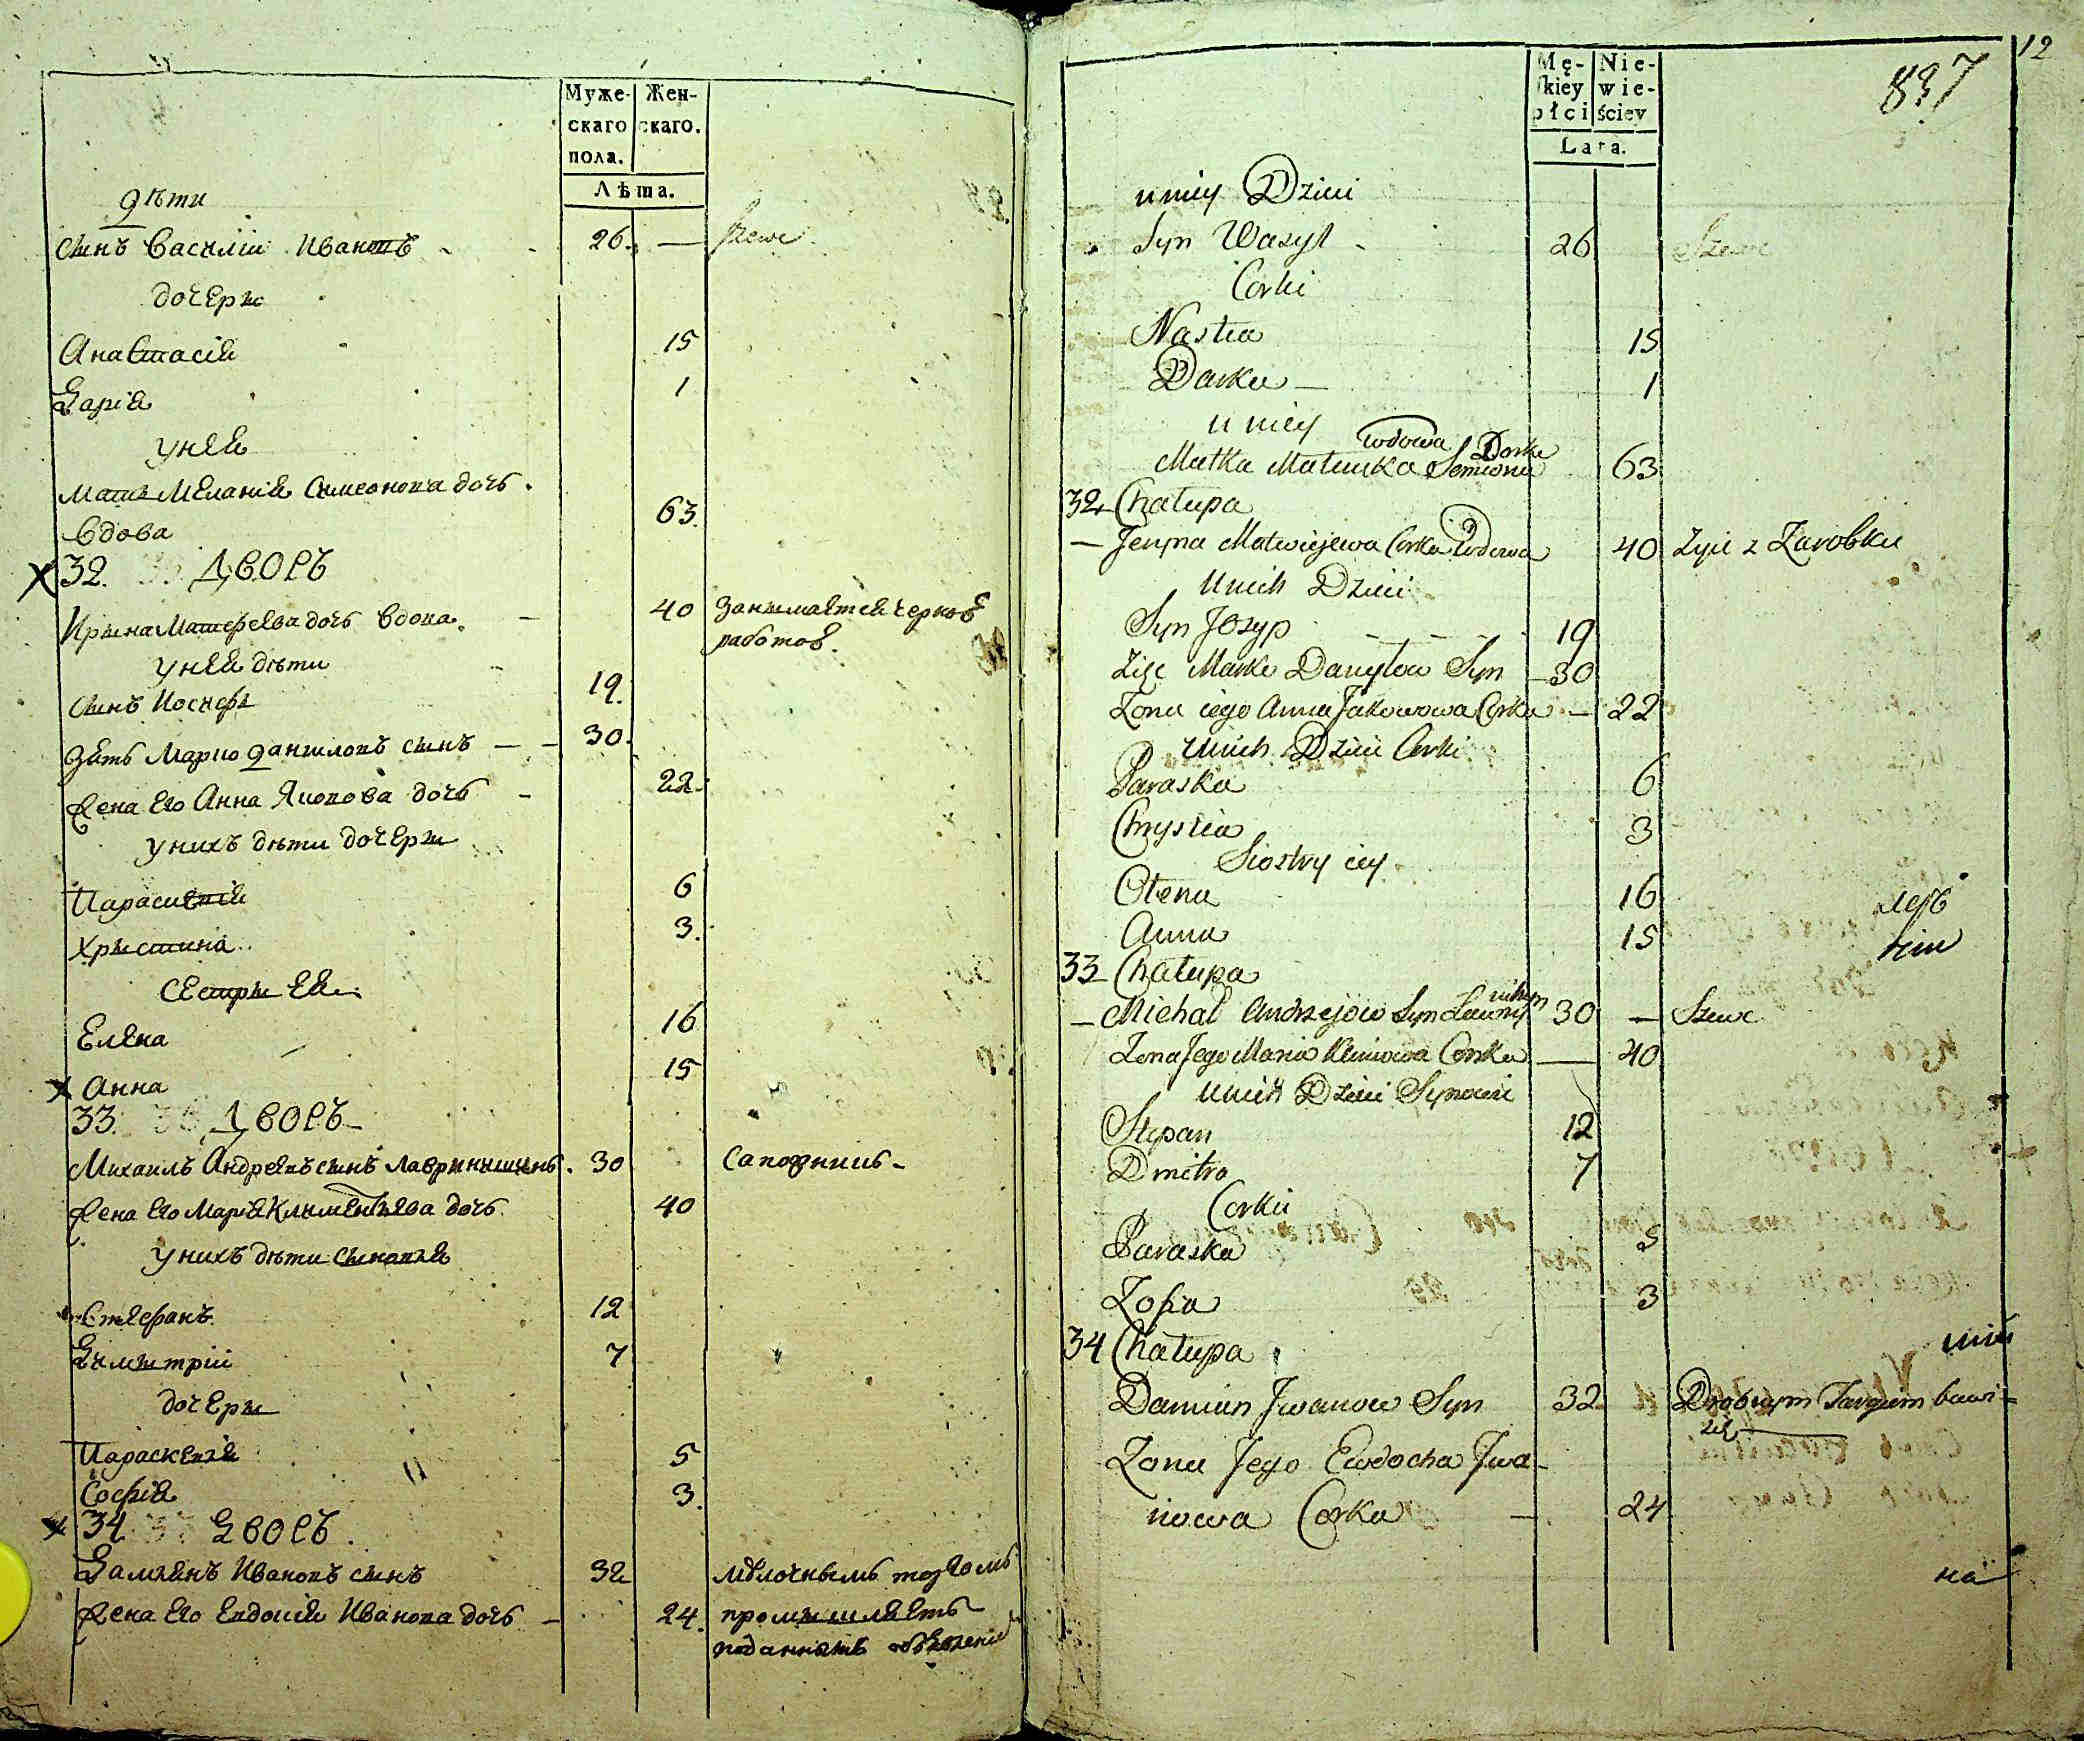 Муже- Жен-
скаго скаго.
пола.
Лѣта.
дѣти
сынъ Василій Ивановъ - 26. — Szewc
дочеры
Анастасія 15
Дарія 1
у нея
мать Меланія Симеонова дочь.
вдова 63.
32. Дворъ
Ирына Матфеева дочь вдова. 40 занымается черною
работою.
у нея дѣти
сынъ Иосифъ 19.
зять Марко Даниловъ сынъ — 30.
жена его Анна Якова дочь - 22.
у нихъ дѣти дочеры
Параскевія 6
Хрыстина 3.
сестры ея
Елена 16
Анна 15
33. Дворъ
Михаилъ Андреевъ сынъ Лаврынышынъ. 30 сапожникъ -
жена его Марія Клыментьева дочь 40
у нихъ дѣти сыновья
Стефанъ 12
Дымытрій 7
дочеры
Параскевія 5
Софія 3.
34 Дворъ.
Дамянъ Ивановъ сынъ 32 мѣлочнымъ торгомъ
жена его Евдокія Иванова дочь - 24. промышляетъ
12
837
Mę- Nie-
skiey wie-
płci ściey
Lata.
u niey Dzieci
Syn Wasyl - 26 Szewc
Corki
Nastia 15
Darka — 1
u niey
wdowa Dorka
Matka Matuuka Semiona 63
32 Chałupa
— Jeryna Matwiejewa Corka Wdowa 40 żyie z Zarobku
u nich Dzieci
Syn Jozyp - - - 19
Zięć Marko Daniłow Syn — 30
Żona iego Anna Jakowowa Corka — 22
u nich Dzieci Corki
Paraska 6
Chrystia 3
Siostry iey
Ołena 16
Anna 15
33 Chałupa
— Michał Andrzejow Syn 30 — Szewc
Żona Jego Maria Klimowa Corka — 40
u nich Dzieci Synowie
Stepan 12
Dmitro 7
Corki
Paraska 5
Zofia 3
34 Chałupa
Damian Jwanow Syn 32 Drobnym Targiem bawi-
się
Żona Jego Ewdocha Jwa-
nowa Corka — 24